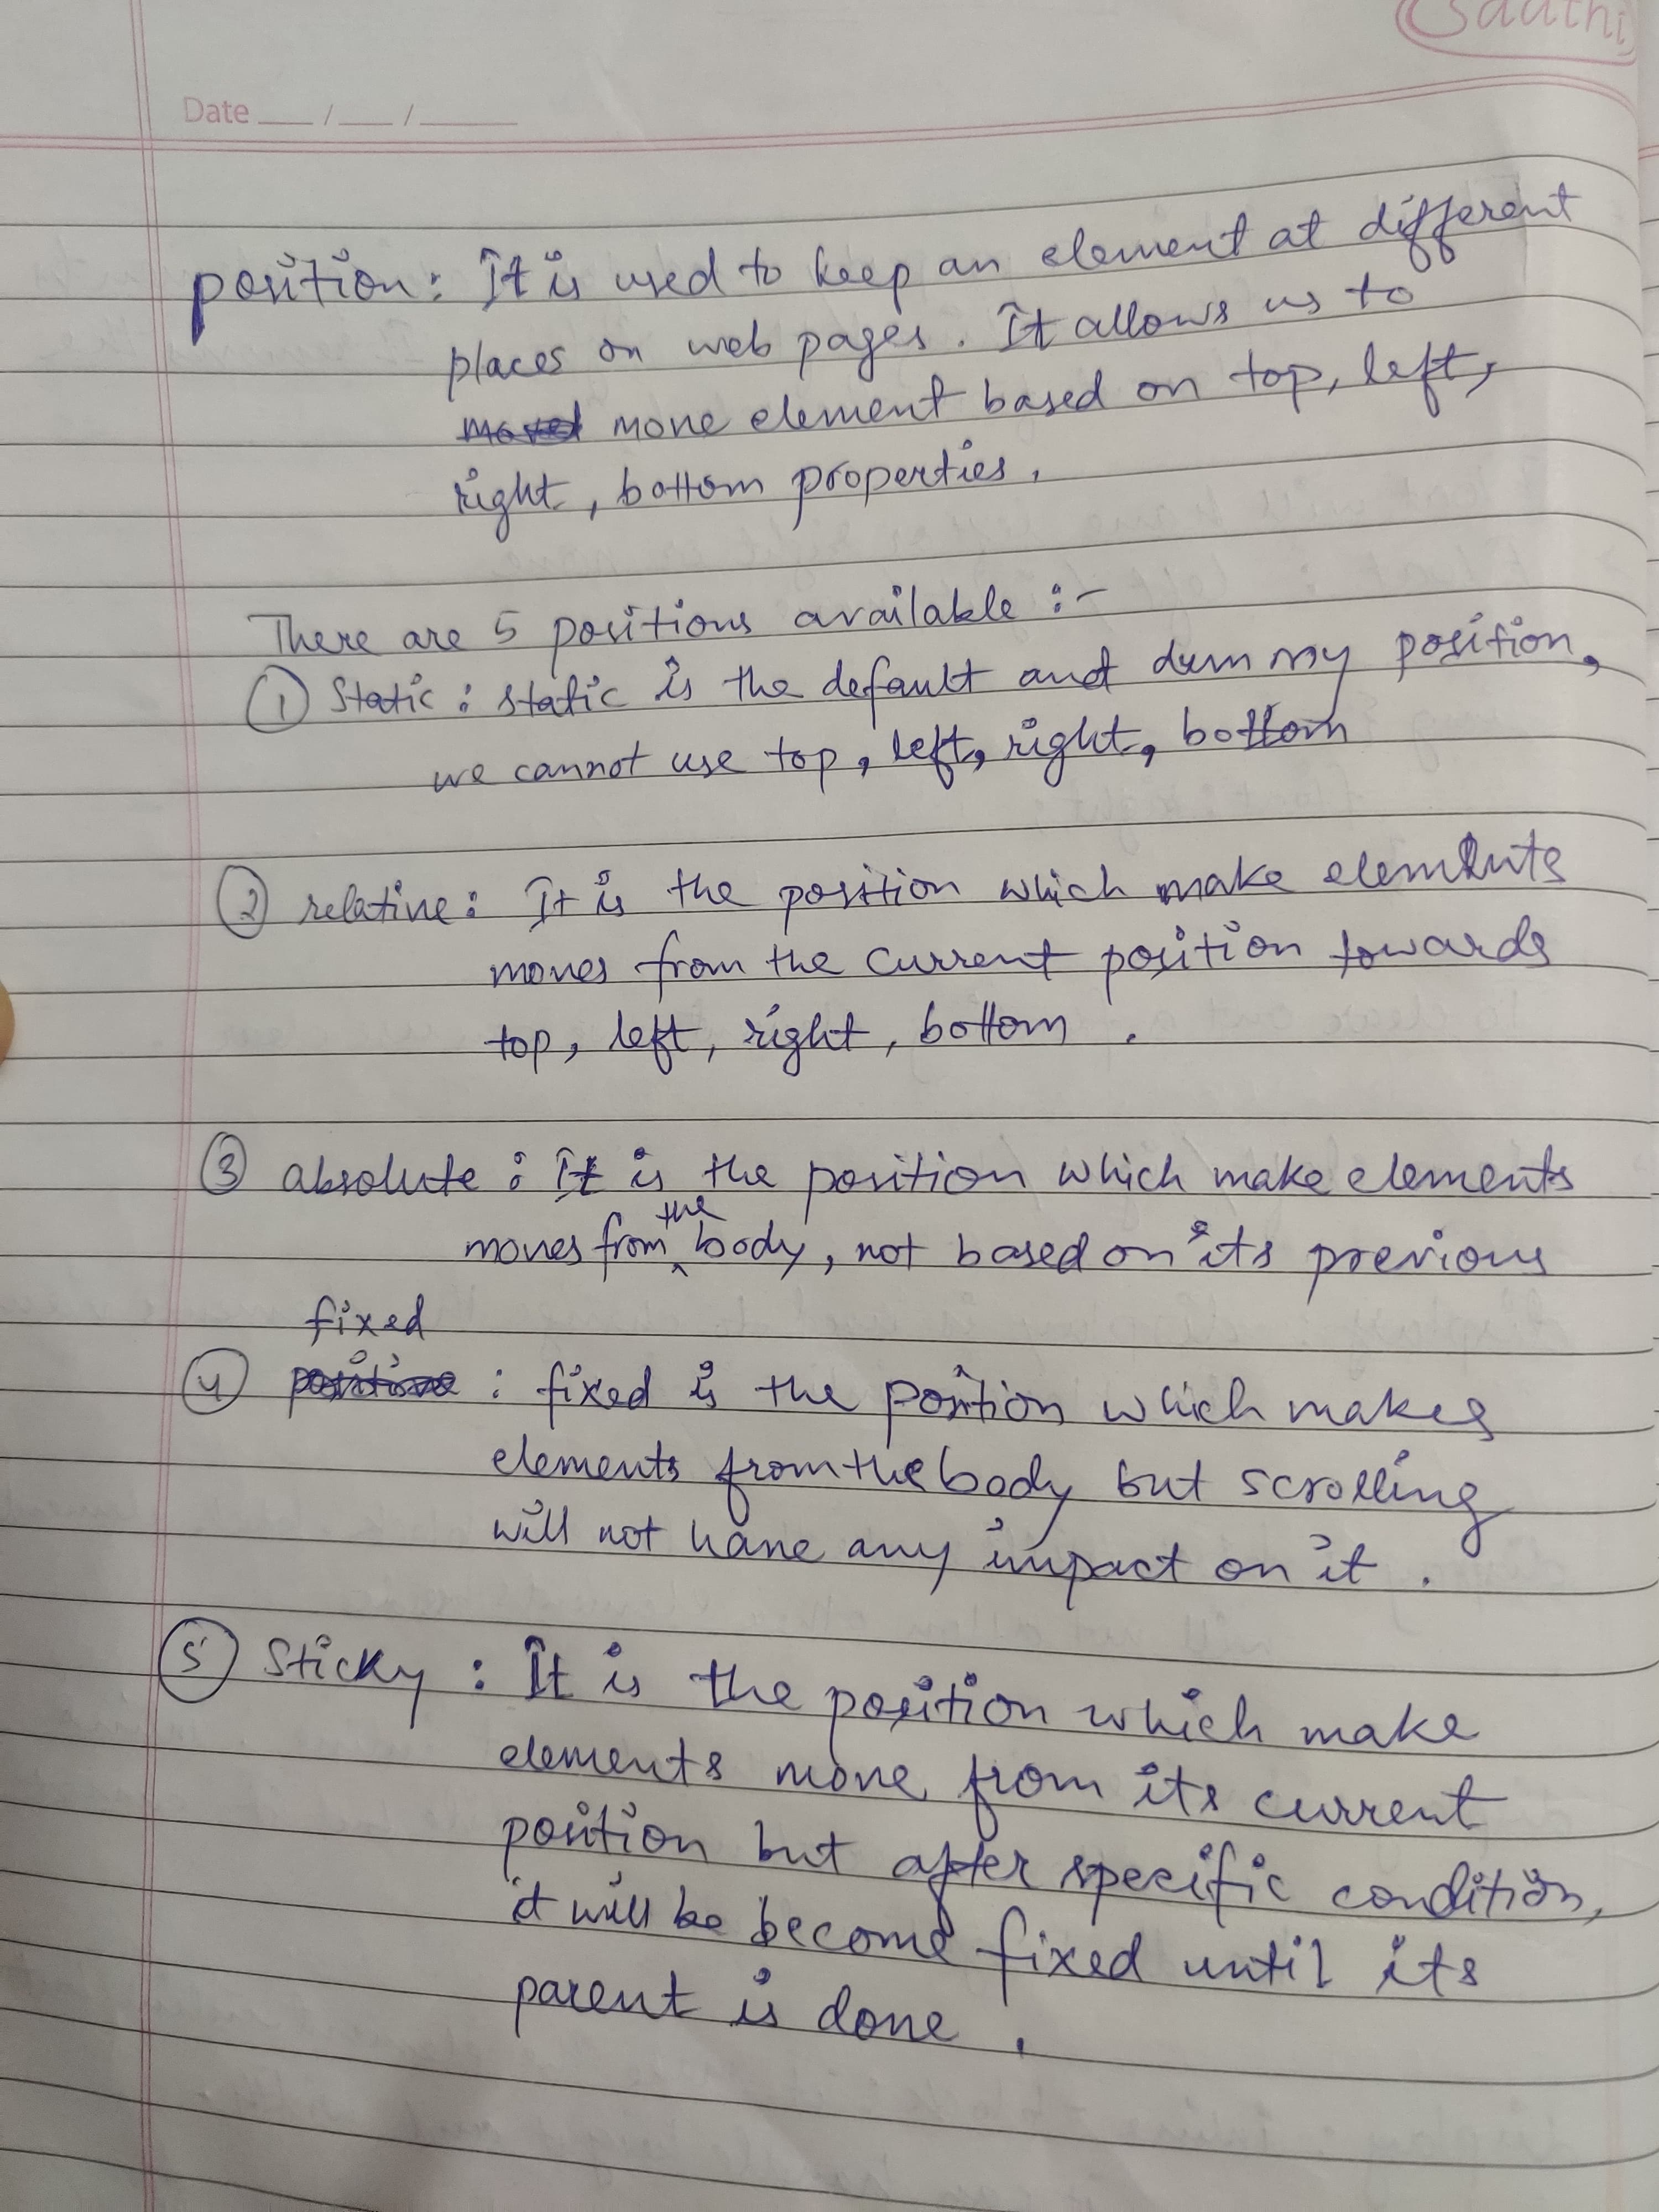 Saathi
Date ___/___/______
position: It is used to keep an element at different
places on web pages. It allows us to
move element based on top, left,
right, bottom properties.
There are 5 positions available :-
① Static : static is the default and dummy position,
we cannot use top, left, right, bottom
② relative: It is the position which make elements
moves from the current position towards
top, left, right, bottom .
③ absolute : It is the position which make elements
moves from the body, not based on its previous
fixed
④ : fixed is the position which makes
elements from the body but scrolling
will not have any impact on it .
⑤ Sticky : It is the position which make
elements move from its current
position but after specific condition,
it will be become fixed until its
parent is done .